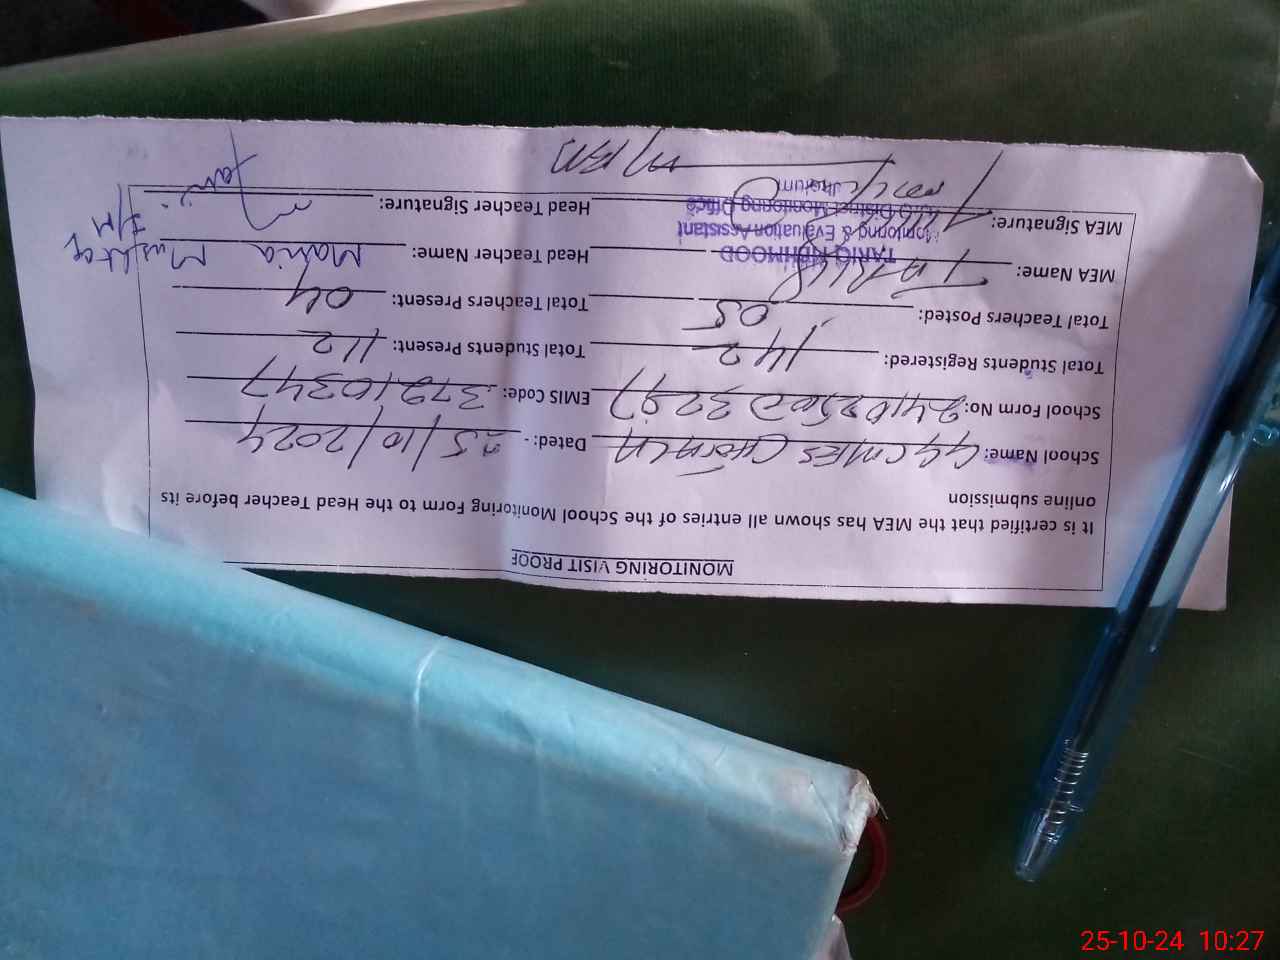 MONITORING VISIT PROOF
It is certified that the MEA has shown all entries of the School Monitoring Form to the Head Teacher before its
online submission
School Name: GGCMES Dated: - 25/10/2024
School Form No: EMIS Code: 37210347
Total Students Registered: 142 Total Students Present: 112
Total Teachers Posted: 05 Total Teachers Present: 04
MEA Name: TARIQ Head Teacher Name: Maria Mushtaq
TARIQ MEHMOOD
Monitoring & Evaluation Assistant
O/O District Monitoring Office
Jhelum
MEA Signature: Head Teacher Signature:
25-10-24 10:27